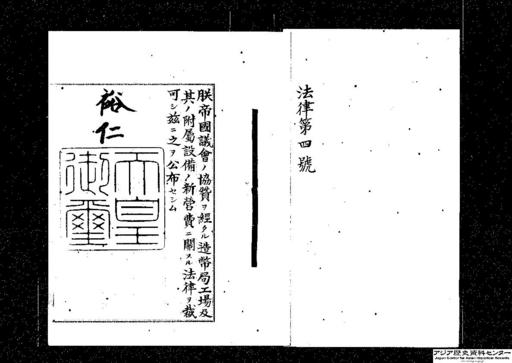 法律第四號
朕帝國議會ノ協贊ヲ經タル造幣局工場及
其ノ附屬設備ノ新營費ニ關スル法律ヲ裁
可シ茲ニ之ヲ公布セシム
裕仁
天皇
御璽
アジア歴史資料センター
Japan Center for Asian Historical Records